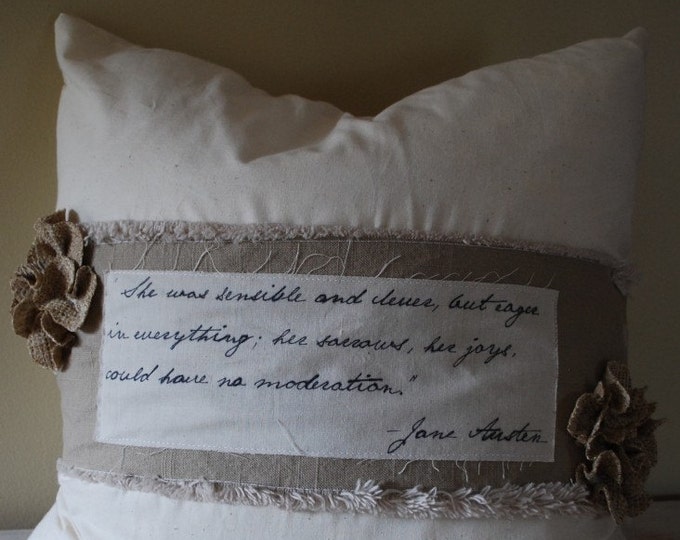 "She was sensible and clever, but eager
in everything; her sorrows, her joys,
could have no moderation."
-Jane Austen